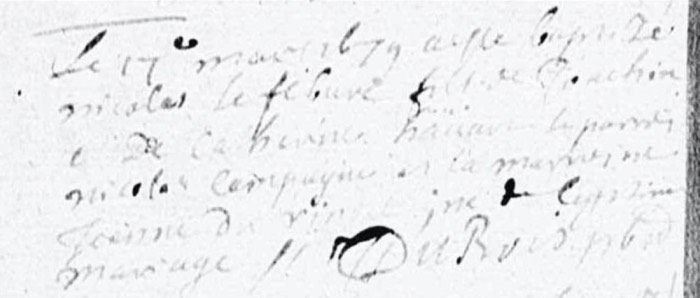 Le 17e mars 1679 a este baptizé
nicolas lefebure fils de Joachin
e De Catherine le parrei
nicolas Campagne et la marreine
Jeinne du de legitime
mariage // Du Bois pbr